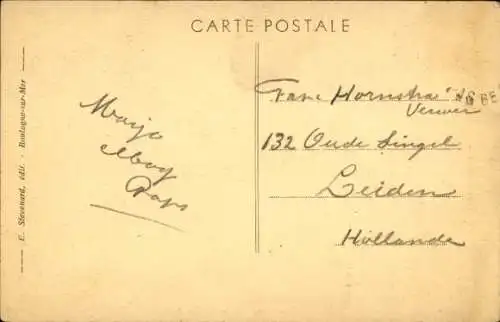 CARTE POSTALE
E. Stevenard, édit. - Boulogne-sur-Mer
Fam. Hornstra
Verver
132 Oude Singel
Leiden
Hollande